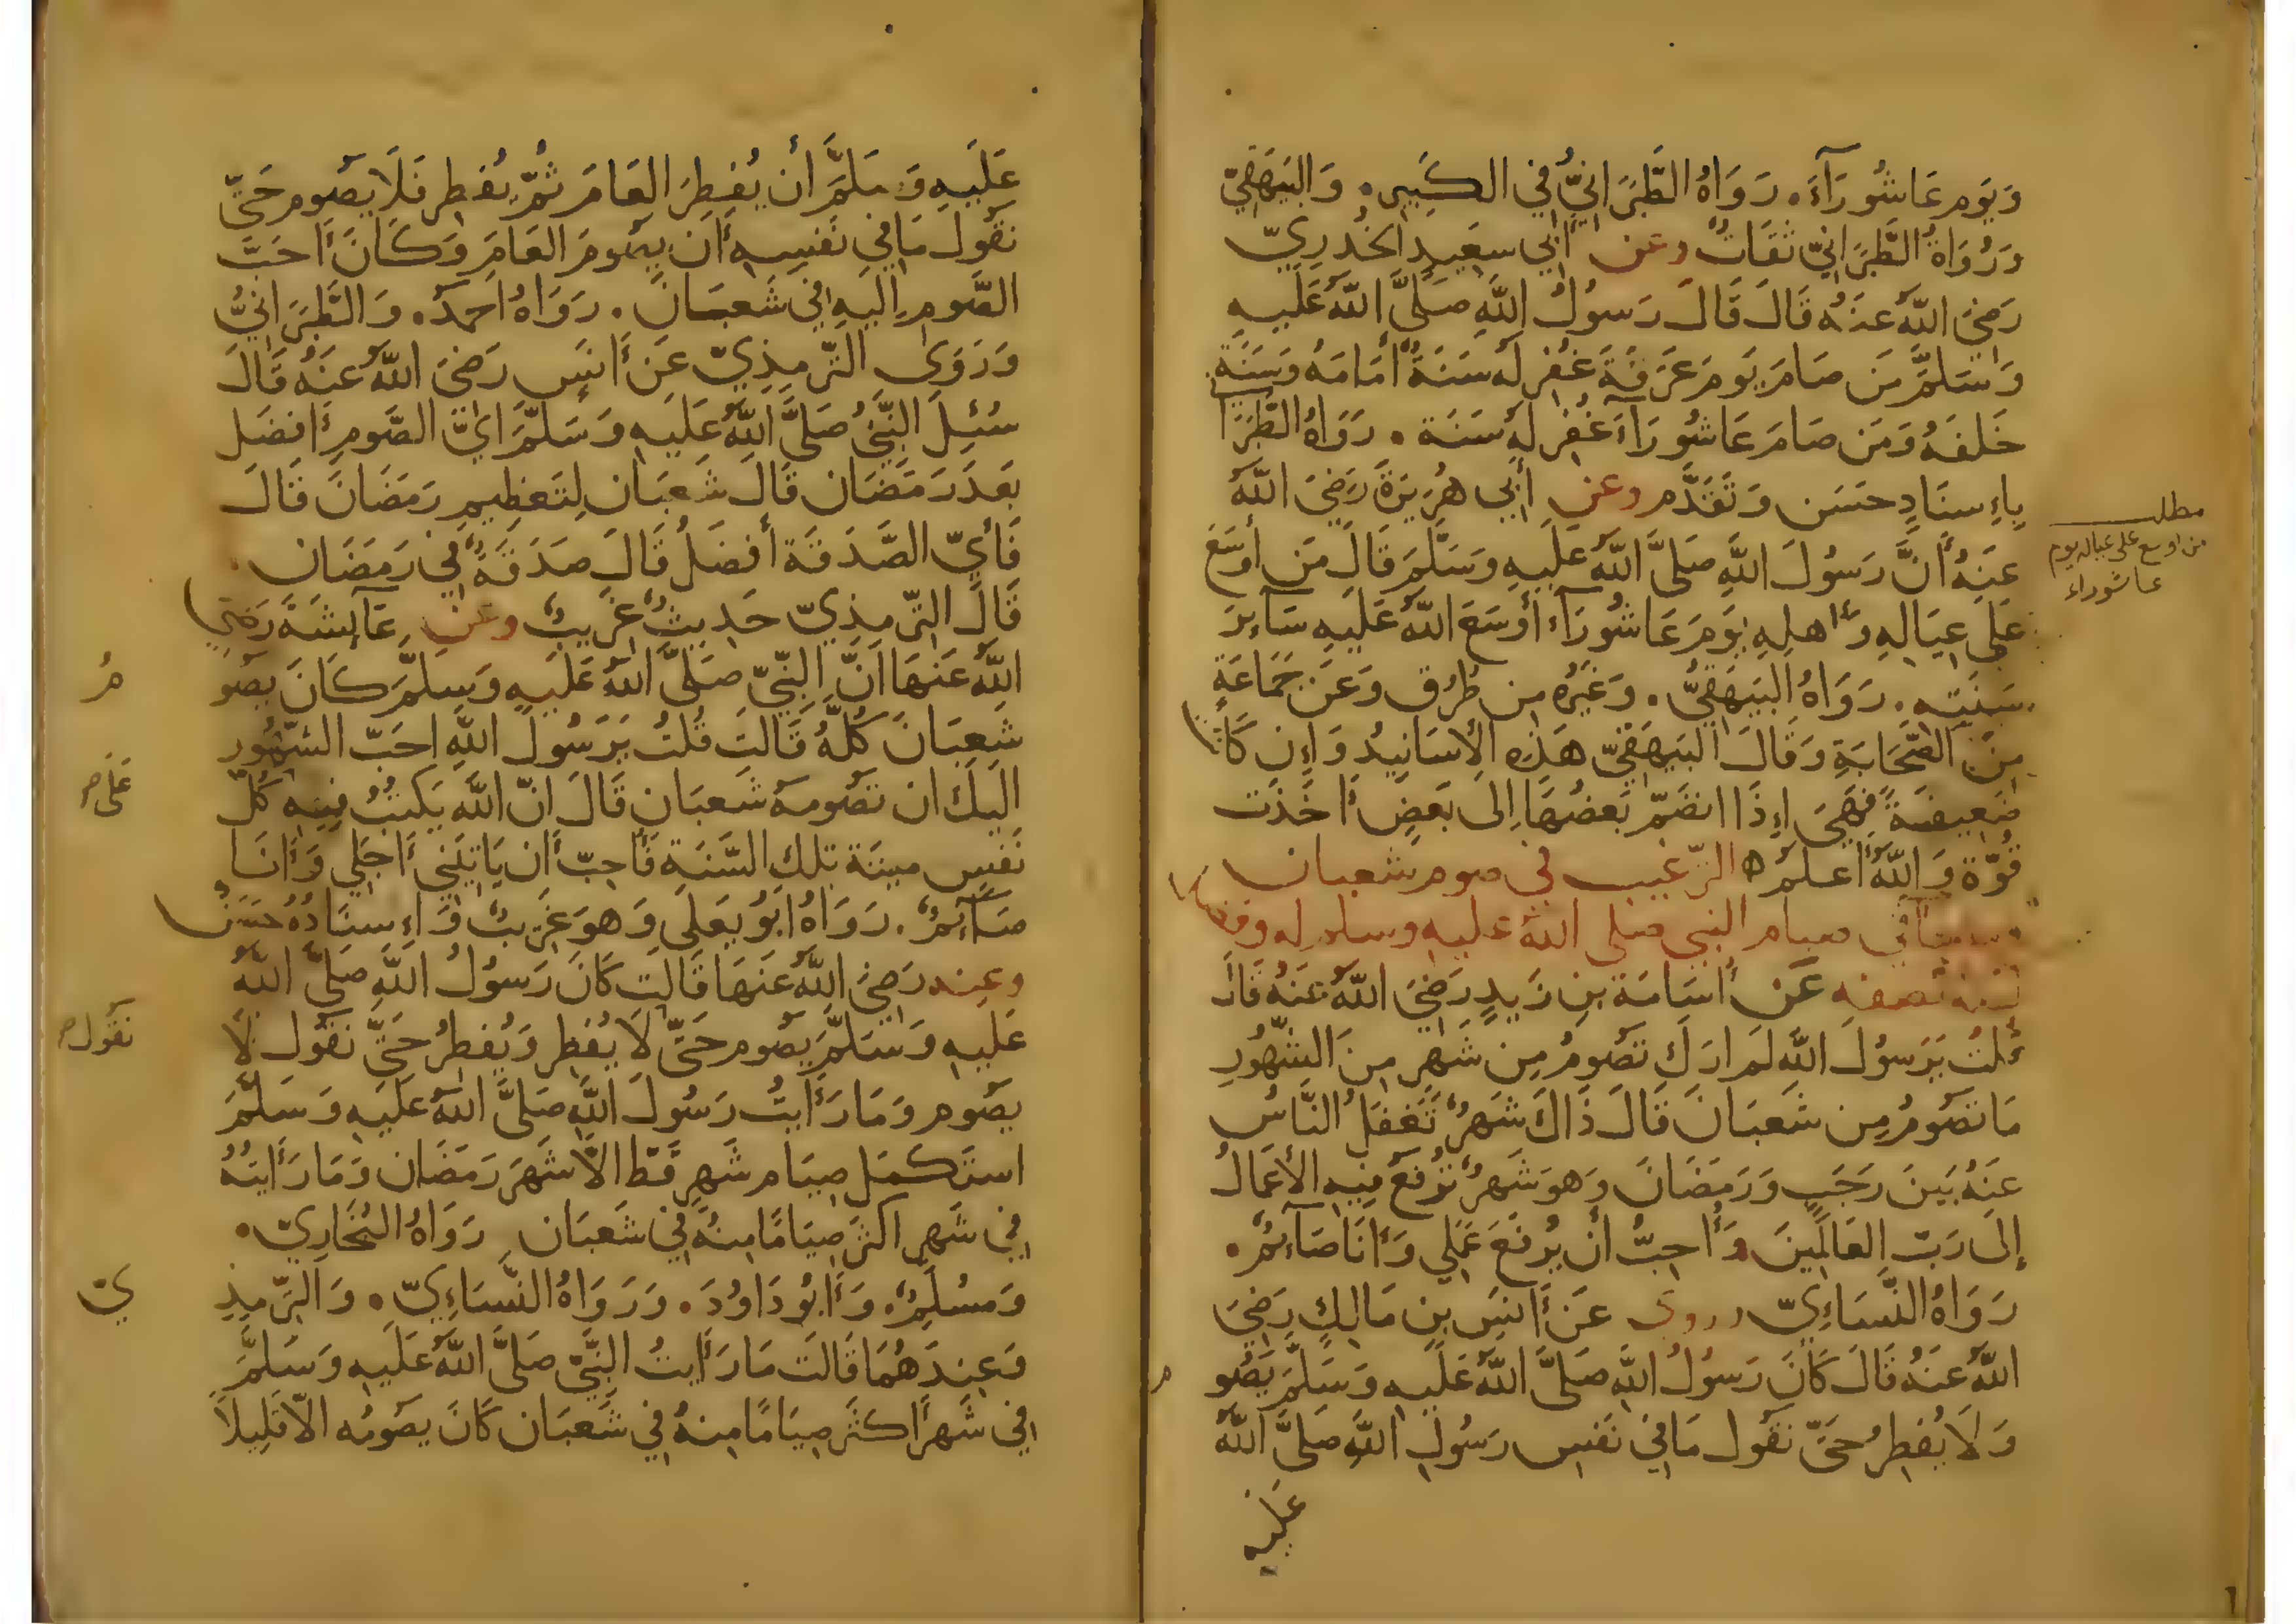 وَيَوم عَاشُورَآءَ. رَوَاهُ الطَّبَرَانِيُّ فِي الكَبِيرِ. وَالبَيهَقِيّ
وَرُوَاةُ الطَّبَرَانِيّ ثقَاتٌ وعن أَبِي سعَيدٍ الخُدرِيّ
رَضِيَ اللّٰهُ عَنهُ قَالَ قَالَ رَسُولُ اللّٰهِ صَلَّى اللّٰهُ عَلَيهِ
وَسَلَّمَ مَن صَامَ يَومَ عَرَفَةَ غُفِر لَهُ سَنَةٌ أمَامَهُ وَسَنَةٍ
خَلفَهُ وَمَن صَامَ عَاشُورَآءَ غُفِر لَهُ سَنَة. رَوَاهُ الطَّبَرَا
بِإِسنَادٍ حسَن وَتَقَدَّم وعن أَبِي هُرَيرَةَ رَضِيَ اللّٰهُ
مطلب
من اوسع على عياله يوم
عاشوراء
عَنهُ أَنَّ رَسُولَ اللّٰهِ صَلَّى اللّٰهُ عَلَيهِ وَسَلَّمَ قَالَ مَن أَوسَعَ
عَلَى عِيَالِهِ وَأَهلِهِ يَومَ عَاشُورَآء أَوسَعَ اللّٰهُ عَلَيهِ سَآءِرَ
سَنَتِهِ. رَوَاهُ البَيهَقِيُّ. وَغَيرُه مِن طُرُق وَعَن جَمَاعَةٍ
مِنَ الصَّحَابَةِ وَقَالَ البَيهَقِيّ هَذِهِ الأسَانِيدُ وَإِن كَانَت
ضَعِيفَةً فَهِيَ إِذَا انضَمّ بَعضُهَا إِلَى بَعضٍ أَخَذَت
قُوّة وَاللّٰهُ أَعلَمُ ه الترغيب في صوم شعبان
وما جاء في صيام النبي صلى الله عليه وسلم له وفضل
ليلة نصفه عَن أُسَامَة بنِ زَيدٍ رَضِيَ اللّٰهُ عَنهُ قَالَ
قُلتُ يَرَسُولَ اللّٰهِ لَم ارَكَ تَصُومُ مِن شَهرٍ مِنَ الشّهُورِ
مَا تَصُومُ مِن شَعبَانَ قَالَ ذَاكَ شَهرٌ تَغفَلُ النَّاسُ
عَنهُ بَينَ رَجَبٍ وَرَمَضَانَ وَهوَ شَهرٌ تُرفَعُ فِيهِ الأَعمَالُ
إلَى رَبّ العَالَمِينَ وَأُحِبُّ أَن يُرفَعَ عَمَلِي وَأَنَا صَآءِمٌ.
رَوَاهُ النَّسَاءِيّ وروي عَن أَنَسِ بنِ مَالِكٍ رَضِيَ
اللّٰهُ عَنهُ قَالَ كَانَ رَسُولُ اللّٰهِ صَلَّى اللّٰهُ عَلَيهِ وَسَلَّمَ يَصُو م
وَلَا يُفطِرُ حَتَّى نَقُولَ مَا فِي نَفسِ رَسُولِ اللّٰهِ صَلَّى اللّٰهُ
عَلَيهِ
عَلَيهِ وَسَلَّمَ أَن يُفطِرَ العَامَ ثُمَّ يُفطِر فَلَا يَصُوم حَتَّى
نَقُولَ مَا فِي نَفسِهِ أَن يصُومَ العَامَ وَكَانَ أَحَبّ
الصَّومِ إِلَيهِ فِي شَعبَانَ. رَوَاهُ أَحمَدُ. وَالطَّبَرَانِيُّ
وَرَوَى التِّرمِذِيّ عَن أَنَسٍ رَضِيَ اللّٰهُ عَنهُ قَالَ
سُئِلَ النَّبِيُّ صَلَّى اللّٰهُ عَلَيهِ وَسَلَّمَ أَيّ الصَّومِ أَفضَل
بَعدَ رَمَضَان قَالَ شَعبَان لِتَعظِيمِ رَمَضَانَ قَالَ
فَأَيّ الصَّدَقَة أَفضَلُ قَالَ صَدَقَةٌ فِي رَمَضَان
قَالَ التِّرمِذِيّ حَدِيثٌ غَرِيبٌ وعن عَآئِشَةَ رَضِيَ
اللّٰهُ عَنهَا أَنَّ النَّبِيّ صَلَّى اللّٰهُ عَلَيهِ وَسَلَّمَ كَانَ يَصُو مُ
شَعبَانَ كُلَّهُ قَالَت قُلتُ يَرَسُولَ اللّٰهِ احَبّ الشّهُورِ
اليكَ ان تَصُومهُ شَعبَان قَالَ انّ اللّٰهَ يَكتُبُ فِيهِ كُلّ
عَلَى
نَفسٍ ميتَة تِلكَ السَّنَةِ فَأُحِبّ أَن يَاتِيَنِي أَجَلِي وَأَنَا
صَآئِمٌ. رَوَاهُ ابُو يَعلَى وَهوَ غَرِيبٌ وَإِسنَادُهُ حَسَنٌ
وعنه رَضِيَ اللّٰهُ عَنهَا قَالَت كَانَ رَسُولُ اللّٰهِ صَلَّى اللّٰهُ
عَلَيهِ وَسَلَّمَ يَصُوم حَتَّى لَا يُفطِر وَيُفطِرُ حَتَّى نَقُولَ لَا
نَقُول
يَصُوم وَمَا رَأَيتُ رَسُولَ اللّٰهِ صَلَّى اللّٰهُ عَلَيهِ وَسَلَّمَ
استَكمَل صِيَام شَهرٍ قَطّ الَّا شَهرَ رَمَضَان وَمَا رَأَيتُهُ
فِي شَهرٍ اكثَر صِيَامًا مِنهُ فِي شَعبَان رَوَاهُ البُخَارِيّ.
وَمُسلِمٌ. وَأَبُو دَاوُدَ. وَرَوَاهُ النَّسَاءِيّ. وَالتِّرمِذِ يّ
وَعِندَهُمَا قَالَت مَا رَأَيتُ النَّبِيّ صَلَّى اللّٰهُ عَلَيهِ وَسَلَّمَ
فِي شَهرٍ أَكثَر صِيَامًا مِنهُ فِي شَعبَان كَانَ يَصُومُه الّا قَلِيلًا